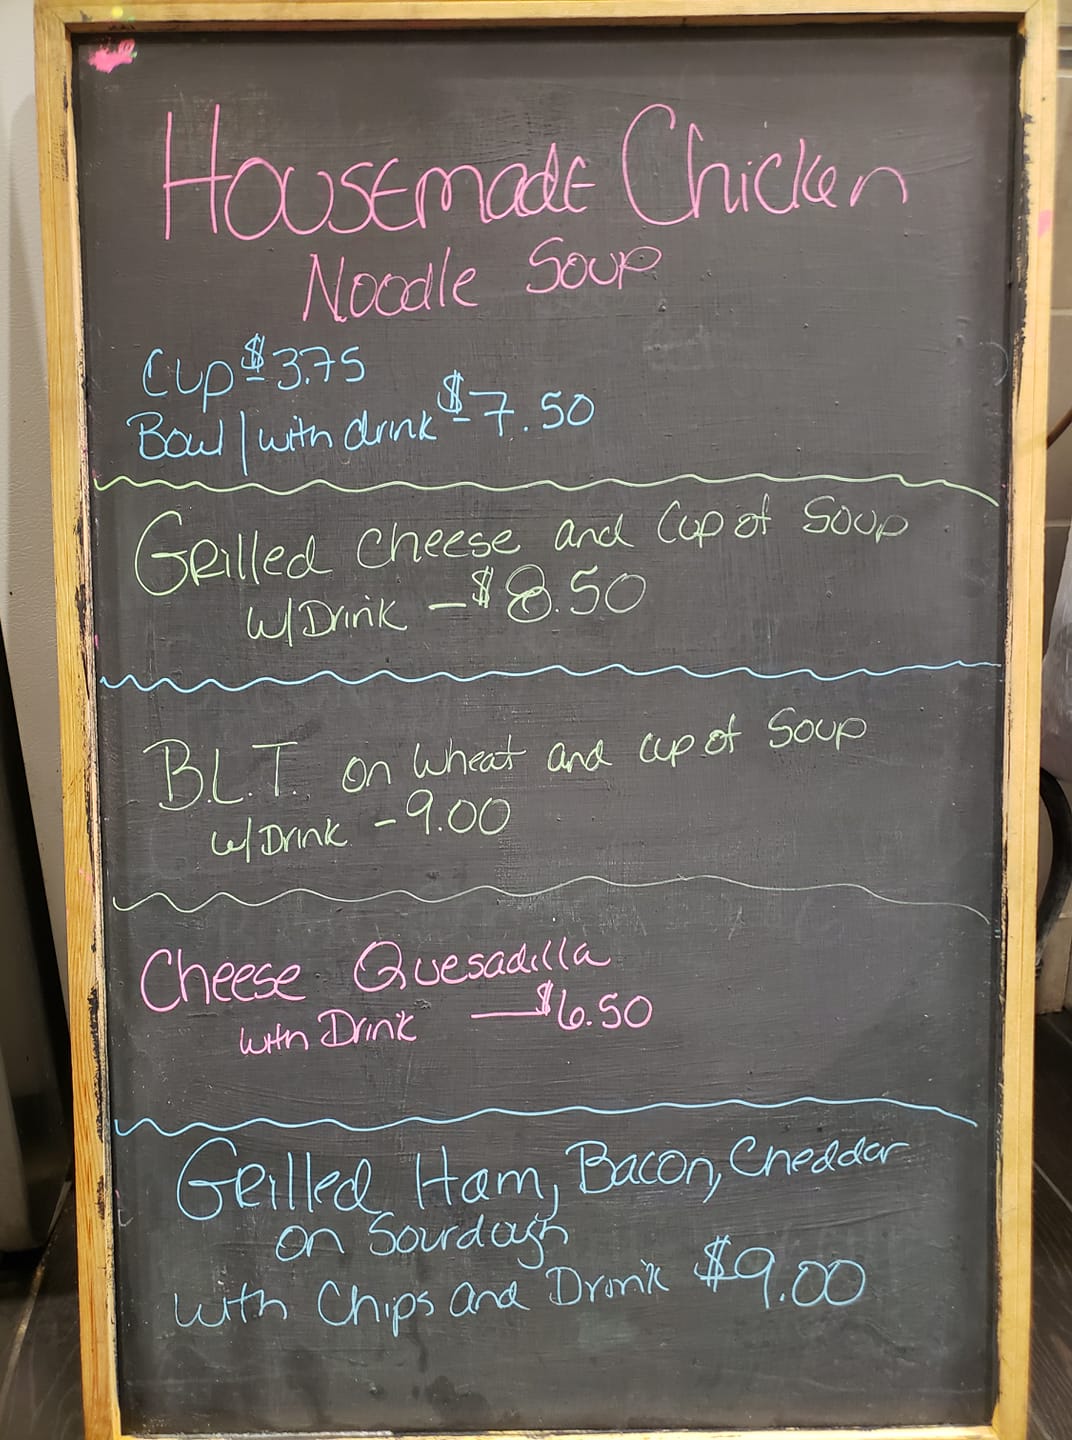 Housemade Chicken
Noodle Soup
Cup $3.75
Bowl/with drink $7.50
Grilled Cheese and Cup of Soup
w/Drink - $8.50
B.L.T. on Wheat and cup of Soup
w/Drink - 9.00
Cheese Quesadilla
with Drink - $6.50
Grilled Ham, Bacon, Cheddar
on Sourdough
with Chips and Drink $9.00